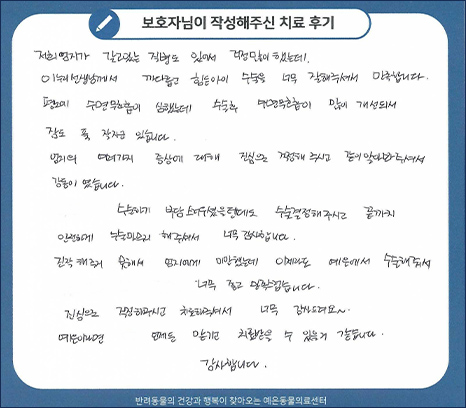 보호자님이 작성해주신 치료 후기
저희 엄지가 갖고있는 질병도 있어서 걱정많이 했는데.
선생님께서 까다롭고 힘든아이 수술을 너무 잘해주셔서 만족합니다.
평소에 수면무호흡이 심했는데 수술후 수면무호흡이 많이 개선되서
잠도 푹 잘자고 있습니다.
엄지의 여러가지 증상에 대해 진심으로 걱정해 주시고 같이 맞다해주셔서
감동이 였습니다.
수술하기 부담스러우셨을텐데도 수술결정해주시고 끝까지
안전하게 수술마무리 해주셔서 너무 감사합니다.
진작 해주지 못해서 엄지에게 미안했는데 이제라도 예은에서 수술해줘서
너무 잘했고 만족합니다.
진심으로 걱정해주시고 치료해주셔서 너무 감사드려요~
예은이라면 언제든 믿고 치료받을 수 있을거 같습니다.
감사합니다.
반려동물의 건강과 행복이 찾아오는 예온동물의료센터